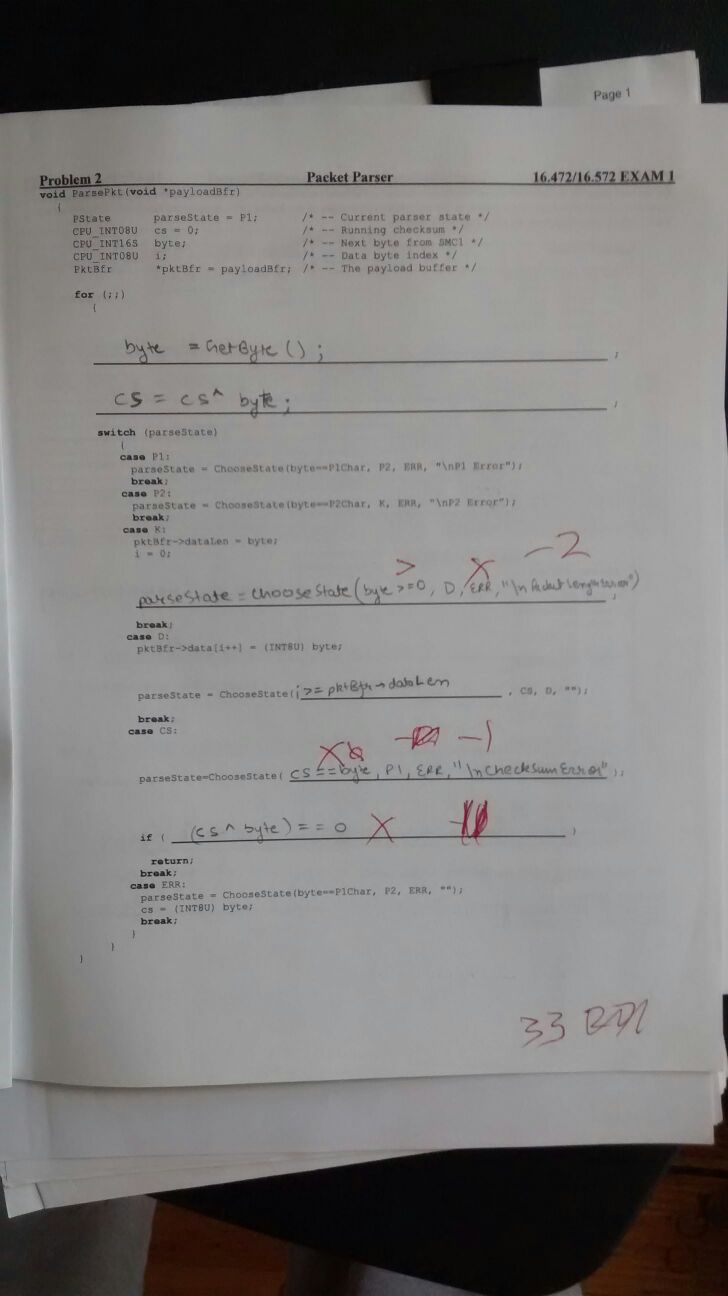 Page 1
Problem 2 Packet Parser 16.472/16.572 EXAM 1
void ParsePkt(void *payloadBfr)
{
PState parseState = P1; /* -- Current parser state */
CPU_INT08U cs = 0; /* -- Running checksum */
CPU_INT16S byte; /* -- Next byte from SMC1 */
CPU_INT08U i; /* -- Data byte index */
PktBfr *pktBfr = payloadBfr; /* -- The payload buffer */
for (;;)
{
byte = GetByte(); ;
cs = cs^ byte; ;
switch (parseState)
{
case P1:
parseState = ChooseState(byte==P1Char, P2, ERR, "\nP1 Error");
break;
case P2:
parseState = ChooseState(byte==P2Char, K, ERR, "\nP2 Error");
break;
case K:
pktBfr->dataLen = byte;
i = 0;
> X -2
parseState = ChooseState(byte >=0, D, ERR, "\n Packet Length Error") ;
break;
case D:
pktBfr->data[i++] = (INT8U) byte;
parseState = ChooseState(i >= pktBfr→dataLen , CS, D, "");
break;
case CS:
X -1
parseState=ChooseState( CS == byte, P1, ERR, "\n Checksum Error" );
if ( (cs ^ byte) == 0 X )
return;
break;
case ERR:
parseState = ChooseState(byte==P1Char, P2, ERR, "");
cs = (INT8U) byte;
break;
}
}
}
33